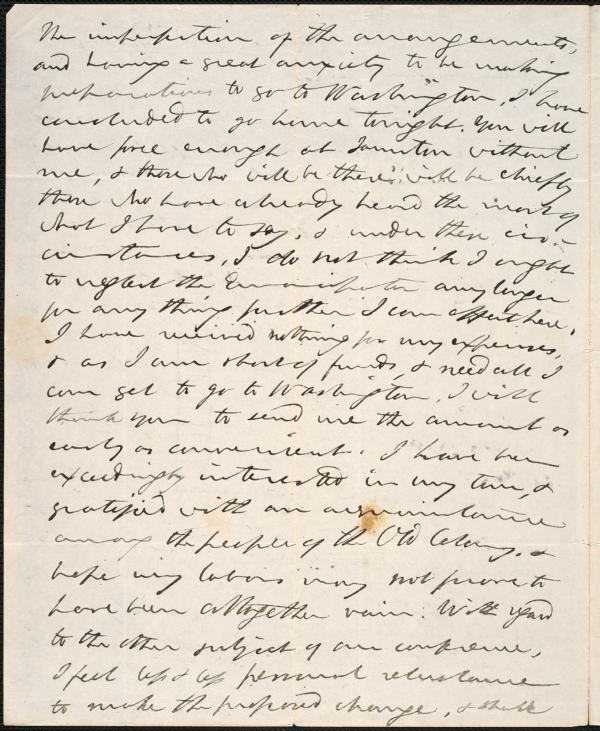 the imperfection of the arrangements,
and having a great anxiety to be making
preparations to go to Washington, I have
concluded to go home tonight. You will
have force enough at Taunton without
me, & those who will be there will be chiefly
those who have already heard the most of
what I have to say, & under these cir-
cumstances, I do not think I ought
to neglect the Emancipator any longer
for any thing further I can effect here.
I have received nothing for my expenses,
& as I am short of funds, & need all I
can get to go to Washington, I will
thank you to send me the amount as
early as convenient. I have been
exceedingly interested in my tour, &
gratified with an acquaintance
among the people of the Old Colony, &
hope my labors may not prove to
have been altogether vain. With regard
to the other subject of our conference,
I feel less & less personal reluctance
to make the proposed change, & shall